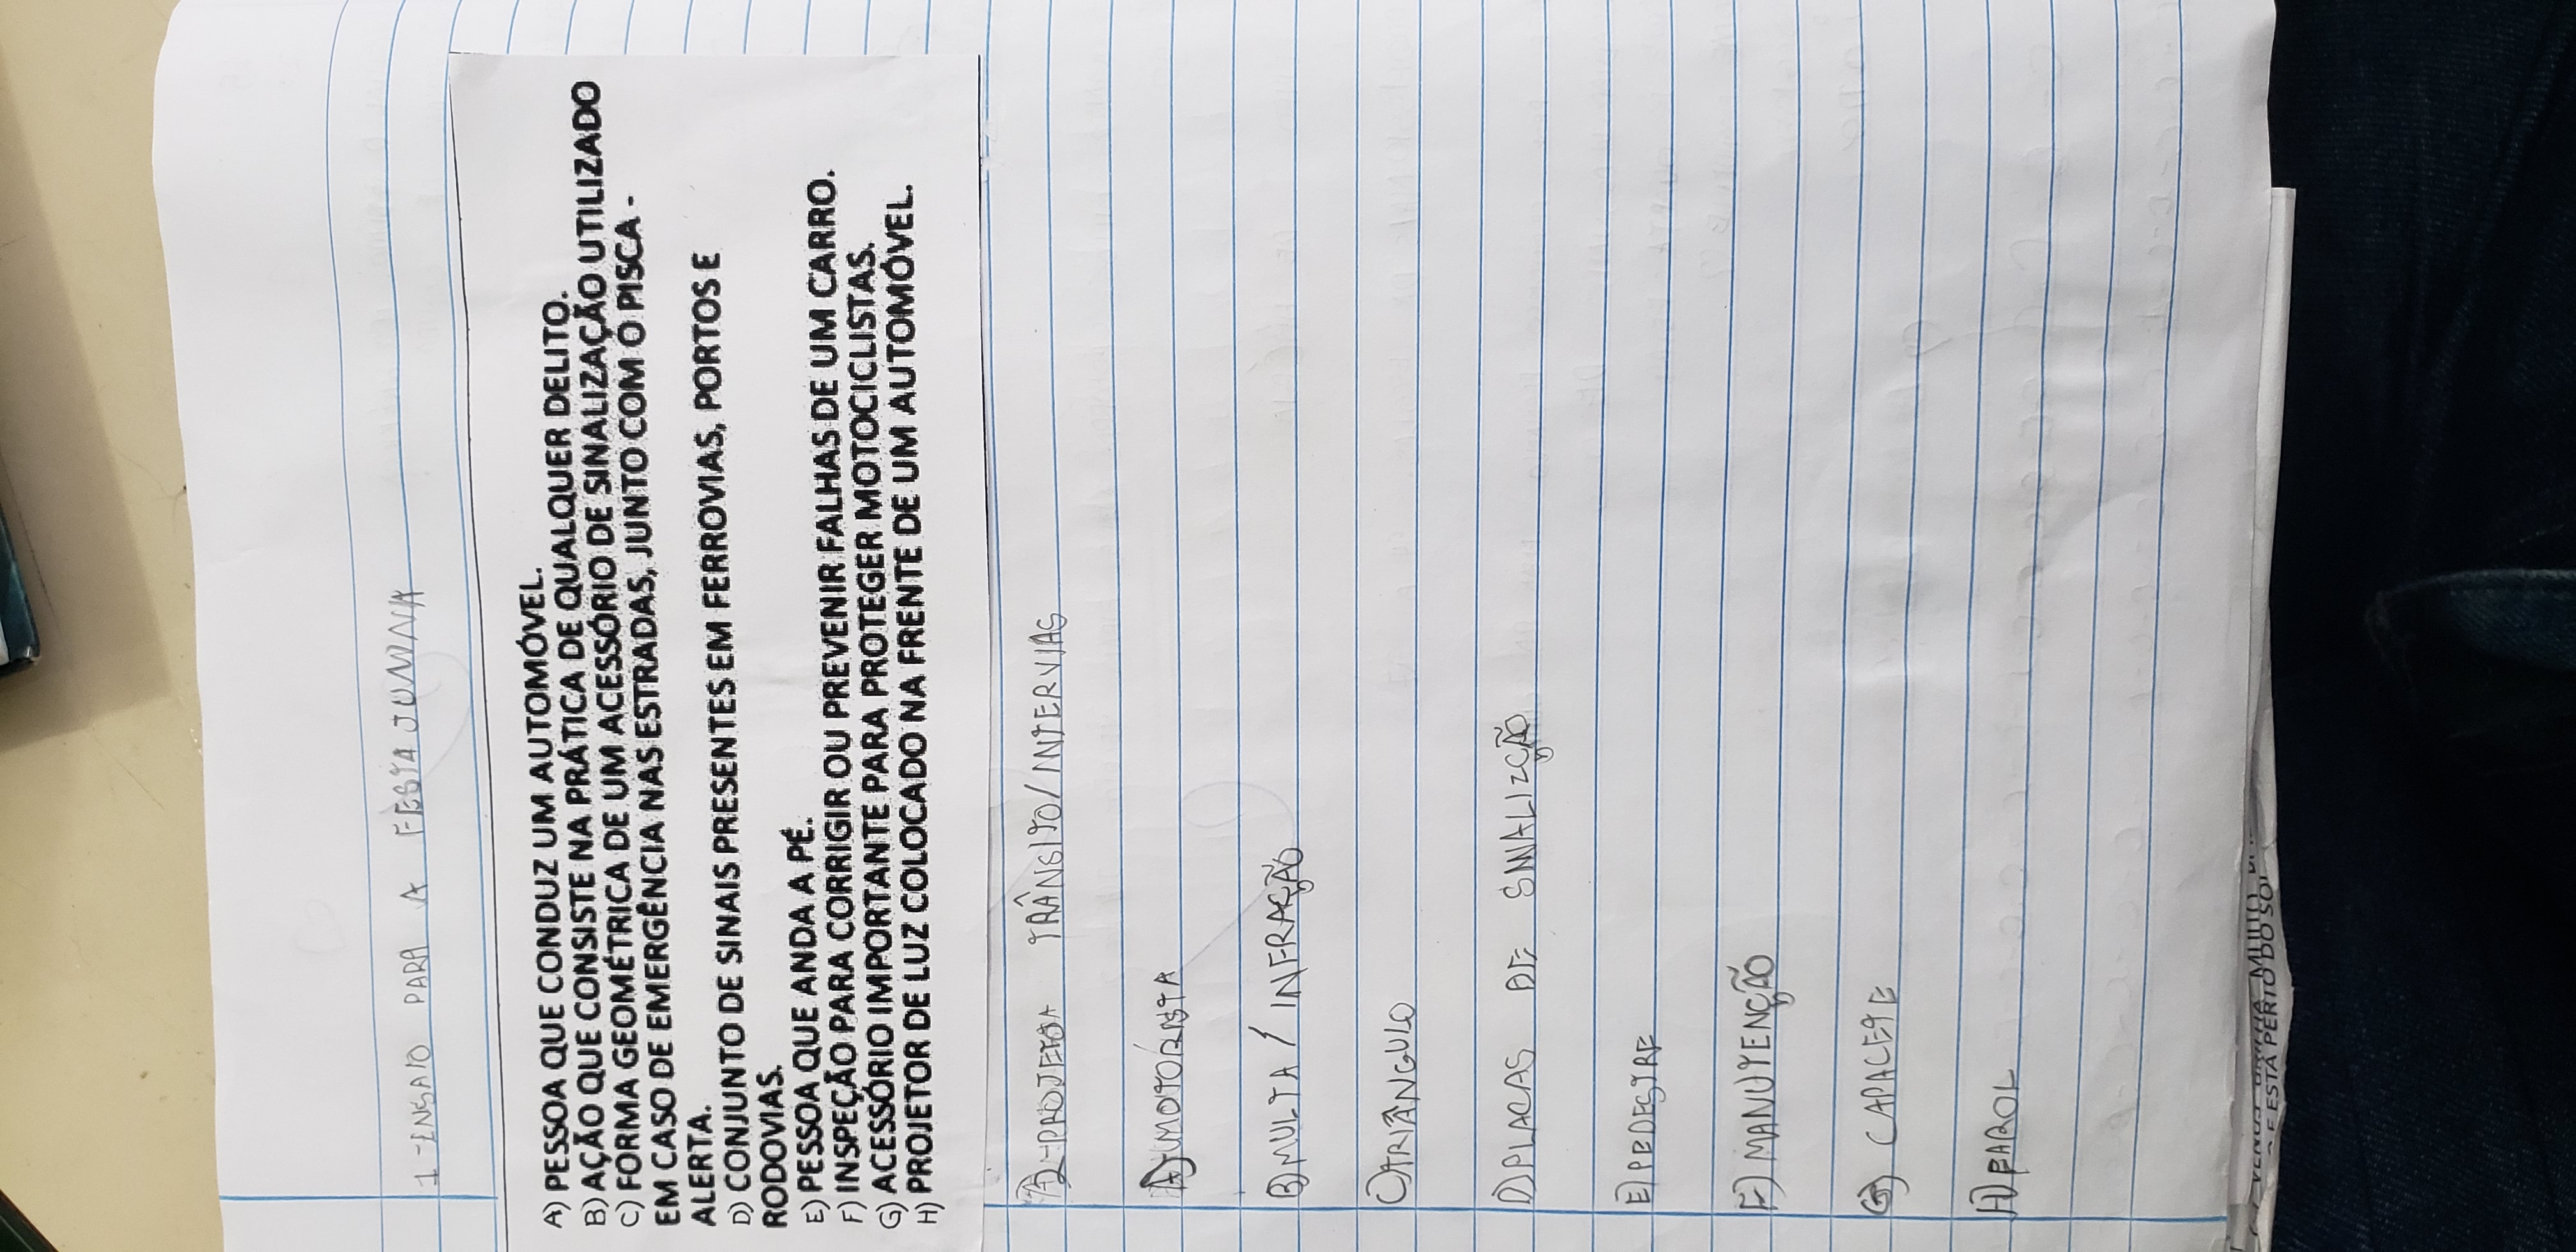 1-ENSAIO PARA A FESTA JUNINA
A) PESSOA QUE CONDUZ UM AUTOMÓVEL.
B) AÇÃO QUE CONSISTE NA PRÁTICA DE QUALQUER DELITO.
C) FORMA GEOMÉTRICA DE UM ACESSÓRIO DE SINALIZAÇÃO UTILIZADO
EM CASO DE EMERGÊNCIA NAS ESTRADAS, JUNTO COM O PISCA -
ALERTA.
D) CONJUNTO DE SINAIS PRESENTES EM FERROVIAS, PORTOS E
RODOVIAS.
E) PESSOA QUE ANDA A PÉ.
F) INSPEÇÃO PARA CORRIGIR OU PREVENIR FALHAS DE UM CARRO.
G) ACESSÓRIO IMPORTANTE PARA PROTEGER MOTOCICLISTAS.
H) PROJETOR DE LUZ COLOCADO NA FRENTE DE UM AUTOMÓVEL.
2-PROJETO TRÂNSITO/INTERVIAS
A) MOTORISTA
B) MULTA / INFRAÇÃO
C) TRIÂNGULO
D) PLACAS DE SINALIZÇÃO
E) PEDESTRE
F) MANUTENÇÃO
G) CAPACETE
H) FAROL
ESTÁ PERTO DO SOL